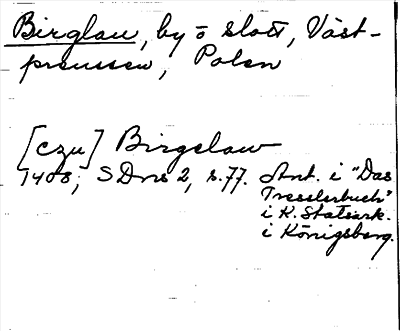 Birglau, by o slott, Väst-
preussen, Polen
[czu] Birgelaw
1408; SDns 2, s. 77. Ant. i "Das
Tresslerbuch"
i K. Statsark.
i Königsberg.